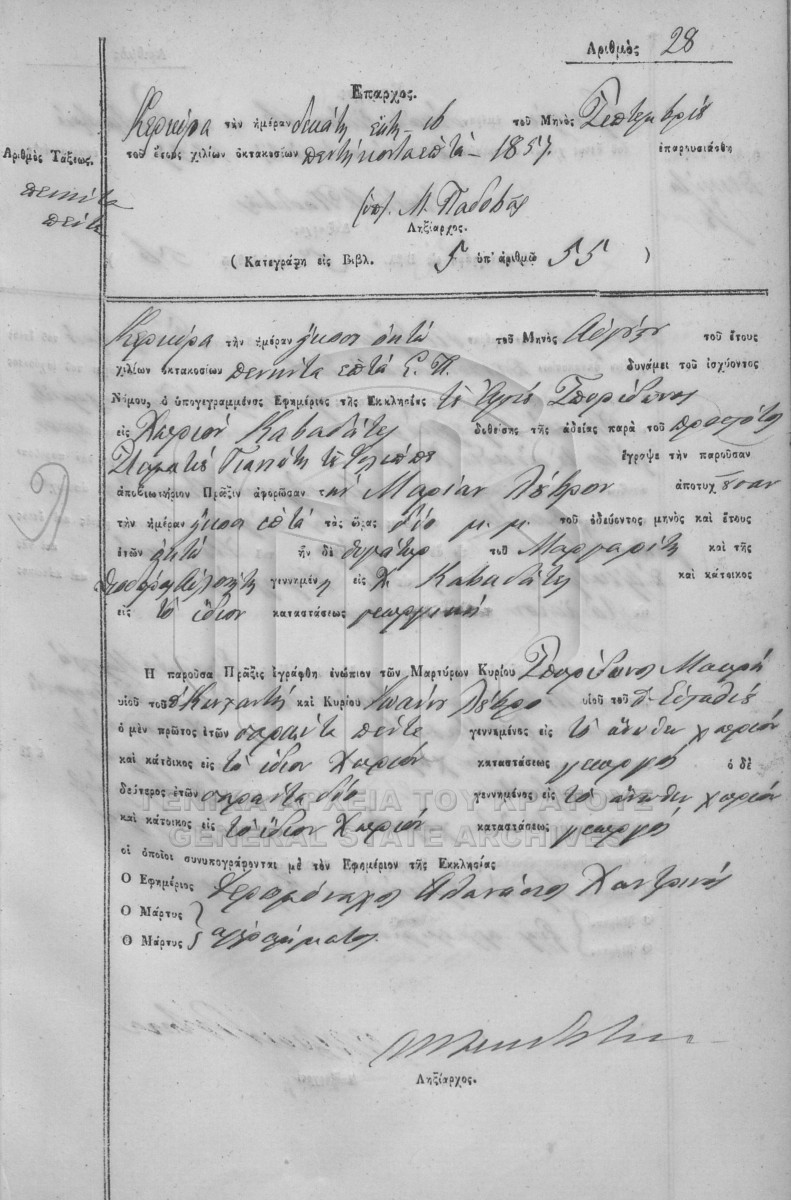 Αριθμὸς 28
Επαρχος.
Κερκύρα τὴν ἡμέραν δεκάτη ἕκτη - 16 τοῦ Μηνὸς Σεπτεμβρίου
τοῦ ἔτους χιλίων ὀκτακοσίων πεντήκοντα ἑπτὰ - 1857. ἐπαρουσιάσθη
Αριθμὸς Τάξεως.
πενήντα
πέντε
(ὑπ). Μ. Παδοβᾶς
Ληξίαρχος.
( Κατεγράφη εἰς Βιβλ. 5 ὑπ' ἀριθμῷ 55 )
Κερκύρα τὴν ἡμέραν ἤκοσι ὀκτὼ τοῦ Μηνὸς Αὐγούστου τοῦ ἔτους
χιλίων ὀκτακοσίων πενήντα ἑπτὰ Ε. Π. δυνάμει τοῦ ἰσχύοντος
Νόμου, ὁ ὑπογεγραμμένος Εφημέριος τῆς Εκκλησίας τοῦ Ἁγίου Σπυρίδωνος
εἰς Χωριὸν Καβαδάτη δοθείσης τῆς ἀδείας παρὰ τοῦ προεστότος
Σταματίου ἔγραψε τὴν παροῦσαν
ἀποβιωτήριον Πρᾶξιν ἀφορῶσαν τὴν Μαρίαν Λούβρον ἀποτυχοῦσαν
τὴν ἡμέραν ἤκοσι ἑπτὰ τὰς ὥρας δύο μ. μ. τοῦ ὁδεύοντος μηνὸς καὶ ἔτους
ἐτῶν ὀκτὼ ἦν δὲ θυγάτηρ τοῦ Μαργαρίτη καὶ τῆς
γεννημένη εἰς Χ. Καβαδάτη καὶ κάτοικος
εἰς τὸ ἴδιον καταστάσεως γεωργική
Η παροῦσα Πρᾶξις ἐγράφθη ἐνώπιον τῶν Μαρτύρων Κυρίου Σπυρίδωνος Μαυρῆ
υἱοῦ τοῦ π. Κωνσταντῆ καὶ Κυρίου Ἰωάννη Λούβρο υἱοῦ τοῦ π. Εὐσταθίου
ὁ μὲν πρῶτος ἐτῶν σαράντα πέντε γεννημένος εἰς τὸ ἄνωθεν χωριόν
καὶ κάτοικος εἰς τὸ ἴδιον Χωριόν καταστάσεως γεωργός ὁ δὲ
δεύτερος ἐτῶν σαράντα δύο γεννημένος εἰς τὸ ἄνωθεν χωριόν
καὶ κάτοικος εἰς τὸ ἴδιον Χωριόν καταστάσεως γεωργός
οἱ ὁποῖοι συνυπογράφονται μὲ τὸν Εφημέριον τῆς Εκκλησίας
Ο Εφημέριος Ἱερομόναχος Ἀθανάσιος Χαντρινός
Ο Μάρτυς
Ο Μάρτυς ἀγράμματοι
Ληξίαρχος.
ΓΕΝΙΚΑ ΑΡΧΕΙΑ ΤΟΥ ΚΡΑΤΟΥΣ
GENERAL STATE ARCHIVES